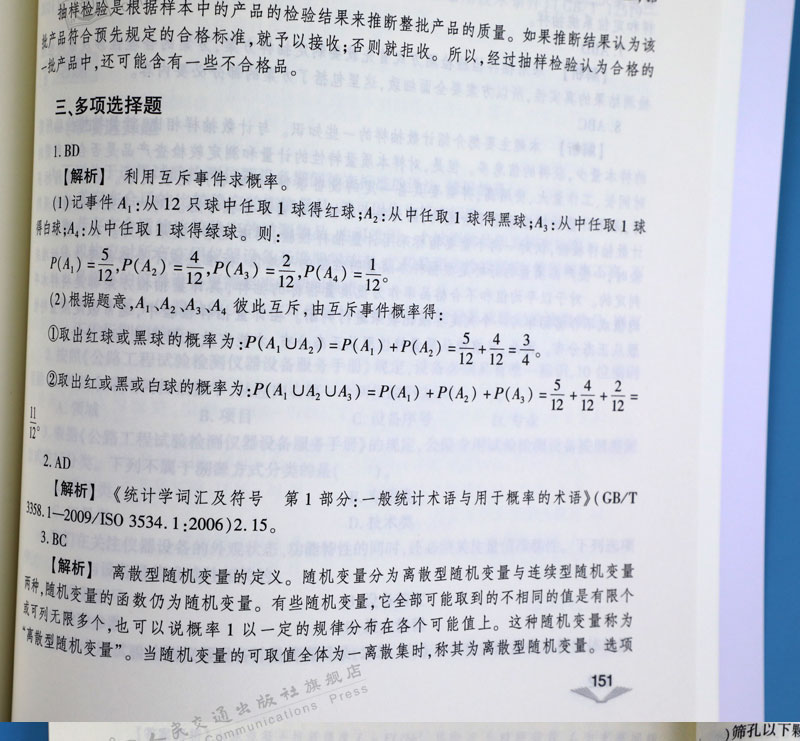 抽样检验是根据样本中的产品的检验结果来推断整批产品的质量。如果推断结果认为该
批产品符合预先规定的合格标准,就予以接收;否则就拒收。所以,经过抽样检验认为合格的
一批产品中,还可能含有一些不合格品。
三、多项选择题
1.BD
【解析】 利用互斥事件求概率。
(1)记事件A₁:从12只球中任取1球得红球;A₂:从中任取1球得黑球;A₃:从中任取1球
得白球;A₄:从中任取1球得绿球。则:
P(A₁)=5/12,P(A₂)=4/12,P(A₃)=2/12,P(A₄)=1/12。
(2)根据题意,A₁、A₂、A₃、A₄彼此互斥,由互斥事件概率得:
①取出红球或黑球的概率为:P(A₁∪A₂)=P(A₁)+P(A₂)=5/12+4/12=3/4。
②取出红或黑或白球的概率为:P(A₁∪A₂∪A₃)=P(A₁)+P(A₂)+P(A₃)=5/12+4/12+2/12=
11/12。
2.AD
【解析】 《统计学词汇及符号 第1部分:一般统计术语与用于概率的术语》(GB/T
3358.1—2009/ISO 3534.1:2006)2.15。
3.BC
【解析】 离散型随机变量的定义。随机变量分为离散型随机变量与连续型随机变量
两种,随机变量的函数仍为随机变量。有些随机变量,它全部可能取到的不相同的值是有限个
或可列无限多个,也可以说概率1以一定的规律分布在各个可能值上。这种随机变量称为
“离散型随机变量”。当随机变量的可取值全体为一离散集时,称其为离散型随机变量。选项
151
民交通出版社旗舰店
Communications Press
)筛孔以下颗